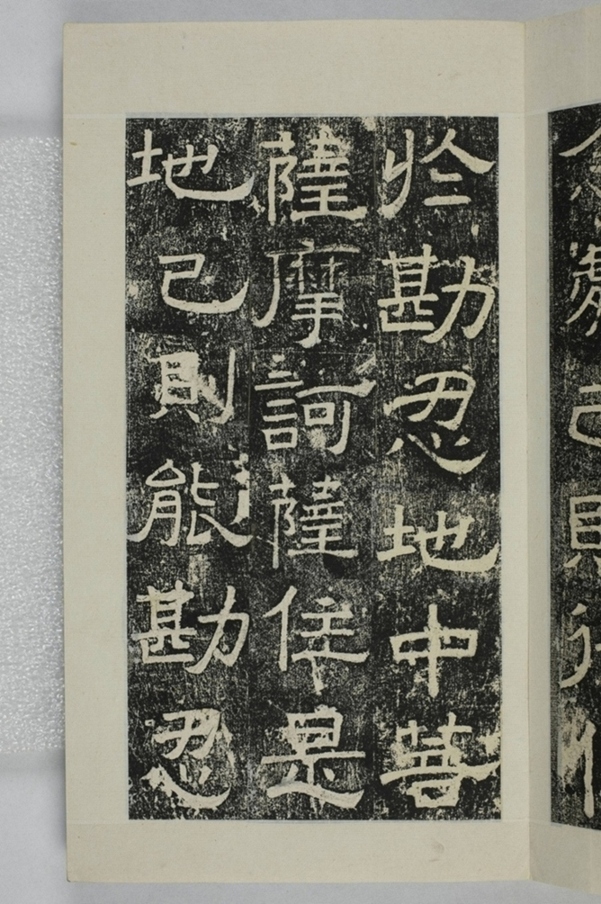 於勘忍地中菩
薩摩訶薩住是
地己則能勘忍